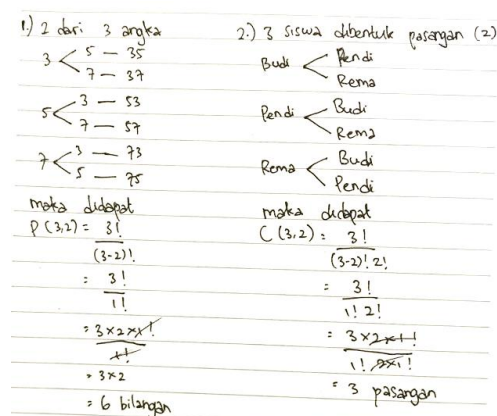 1.) 2 dari 3 angka
3 < 5 — 35
7 — 37
5 < 3 — 53
7 — 57
7 < 3 — 73
5 — 75
maka didapat
P(3,2) = 3!
(3-2)!
= 3!
1!
= 3×2×1!
1!
= 3×2
= 6 bilangan
2.) 3 siswa dibentuk pasangan (2)
Budi < Pendi
Rema
Pendi < Budi
Rema
Rema < Budi
Pendi
maka didapat
C(3,2) = 3!
(3-2)! 2!
= 3!
1! 2!
= 3×2×1!
1! 2×1!
= 3 pasangan